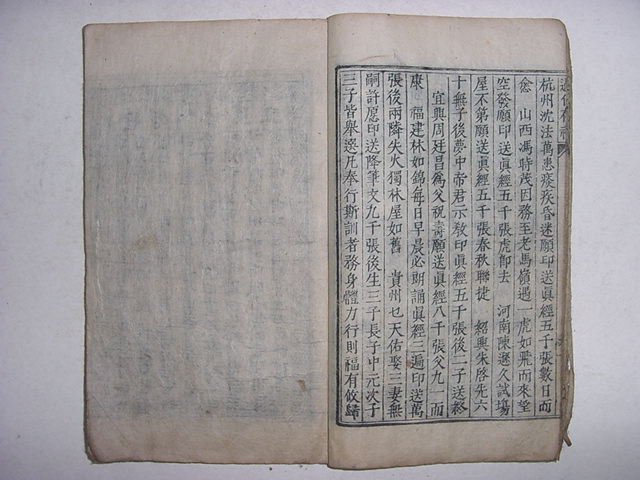 杭州沈法萬患痰疾昏迷願印送眞經五千張數日而
愈　山西馮時茂因務至老馬嶺遇一虎如飛而來望
空發願印送眞經五千張虎卽去　河南陳遯久試場
屋不第願送眞經五千張春秋聯捷　紹興朱啓先六
十無子後夢中帝君示敎印眞經五千張後二子送終
宜興周廷昌爲父祝壽願送眞經八千張父九一而
康　福建林如錦每日早晨必朗誦眞經三遍印送萬
張後兩隣失火獨林屋如舊　貴州乜天佑娶三妻無
嗣許愿印送降筆文九千張後生三子長子中元次子
三子皆舉選凡奉行斯訓者務身體力行則福有攸歸